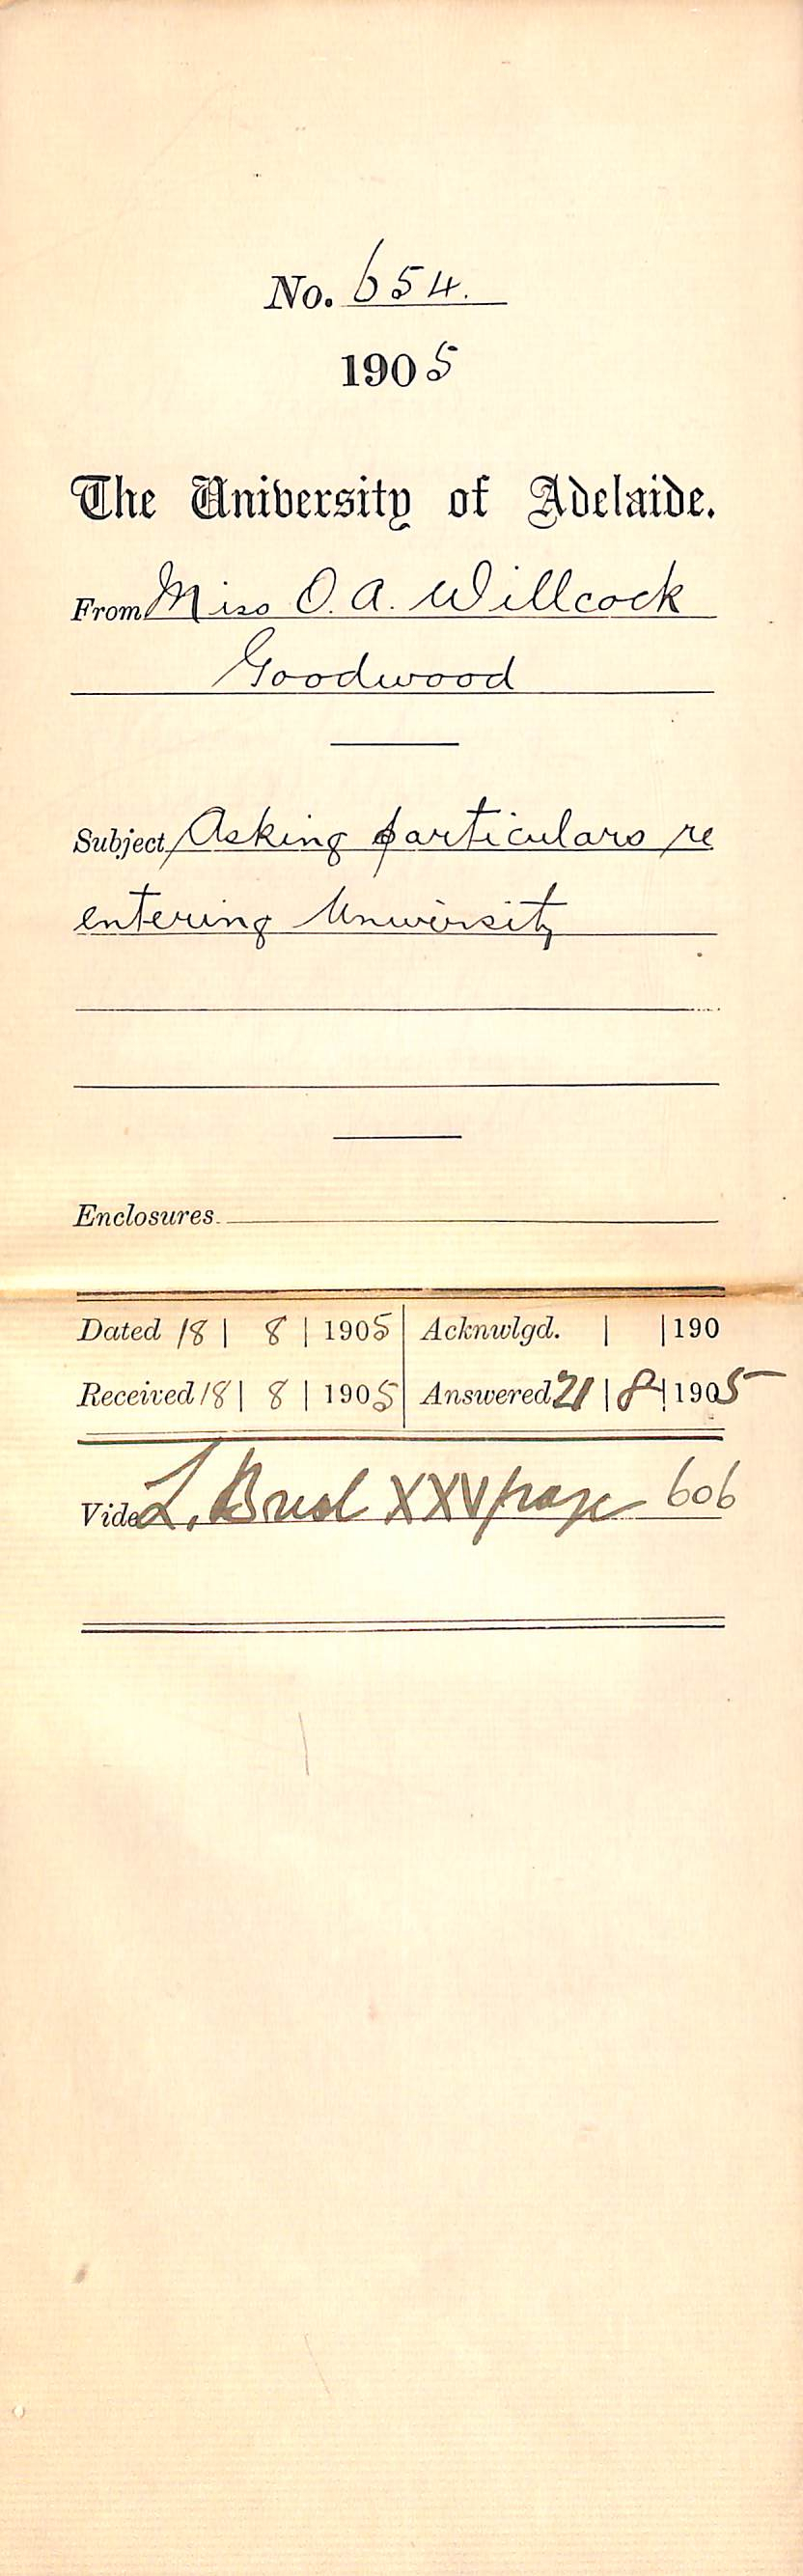 No. 654.
1905
The University of Adelaide.
From Miss O. A. Willcock
Goodwood
Subject Asking particulars re
entering University
Enclosures
Dated 18 | 8 | 1905 Acknwlgd. | | 190
Received 18 | 8 | 1905 Answered 21 | 8 | 1905
Vide L. XXV page 606